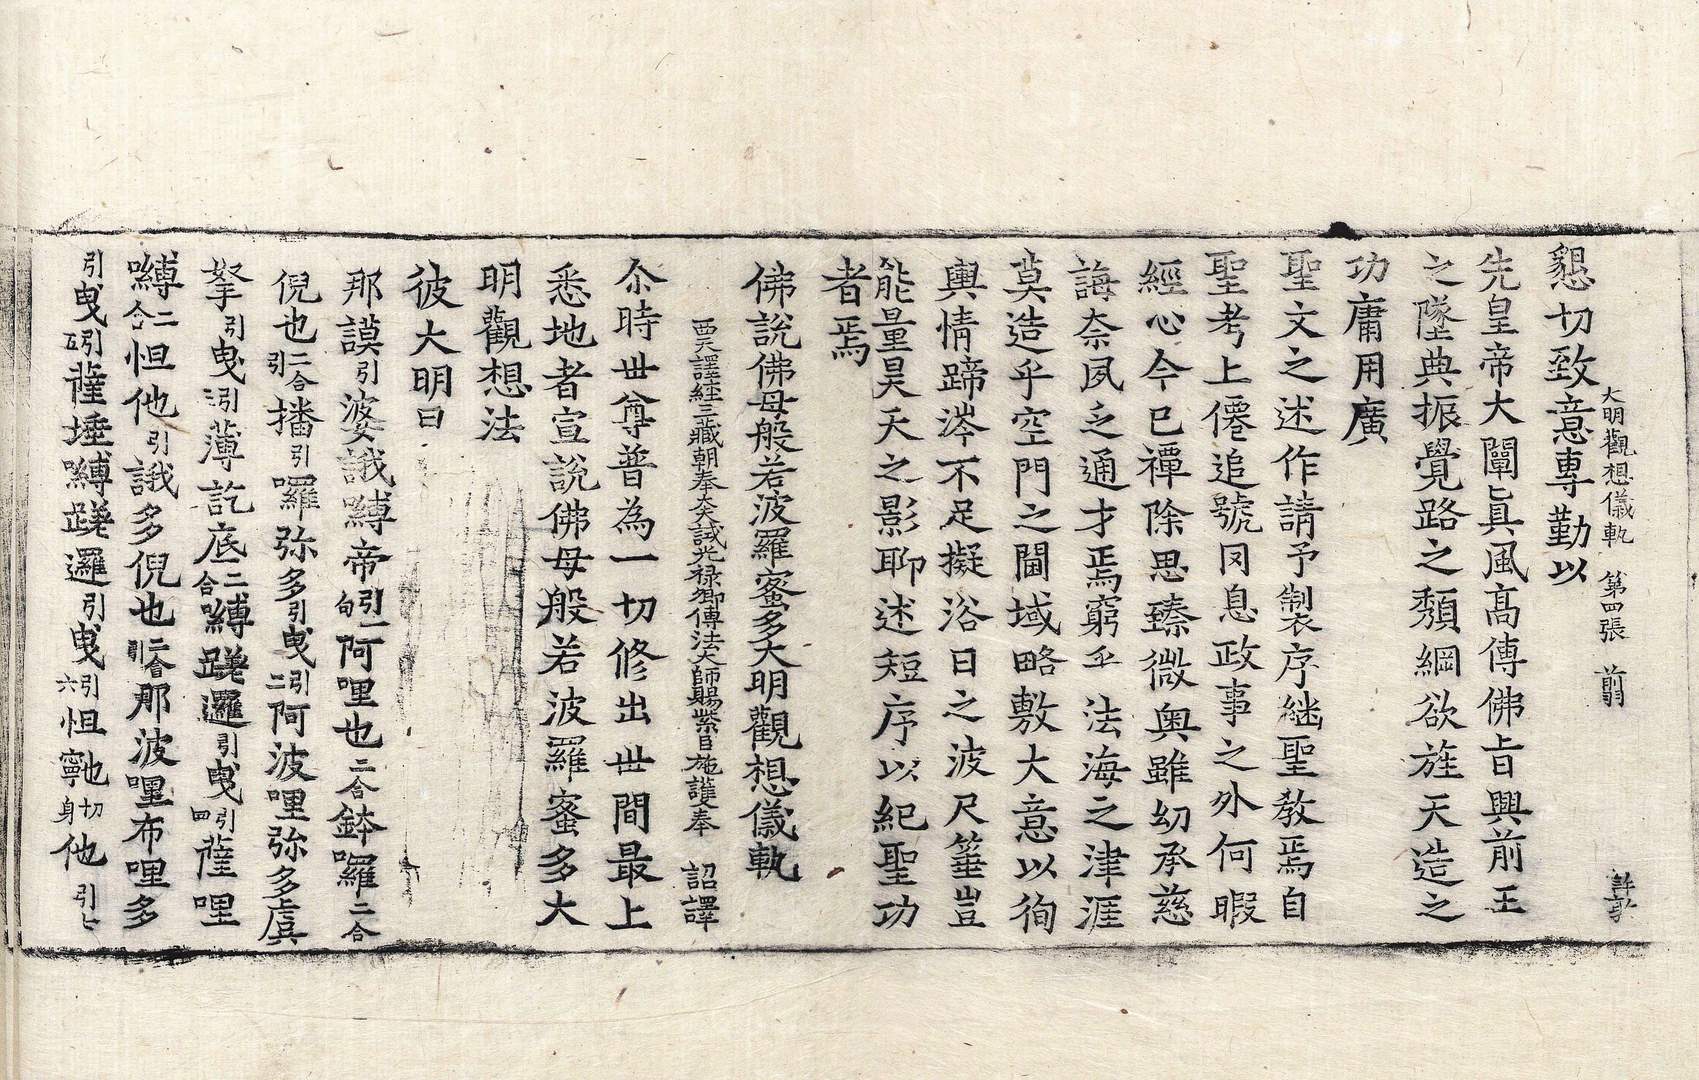 大明觀想儀軌 第四張 前
懇切致意專勤以
先皇帝大闡眞風高傳佛旨興前王
之墜典振覺路之頹綱欲旌天造之
功庸用廣
聖文之述作請予製序継聖教焉自
聖考上僊追號罔息政事之外何暇
經心今已禫除思臻微奧雖幼承慈
誨奈夙乏通才焉窮乎法海之津涯
莫造乎空門之閫域略敷大意以徇
輿情蹄涔不足擬浴日之波尺箠豈
能量昊天之影聊述短序以紀聖功
者焉
佛說佛母般若波羅蜜多大明觀想儀軌
西天譯經三藏朝奉大夫試光祿卿傳法大師賜紫臣施護奉 詔譯
尒時世尊普為一切修出世間最上
悉地者宣說佛母般若波羅蜜多大
明觀想法
彼大明曰
那謨引婆誐嚩帝引一句阿哩也二合鉢囉二合
倪也二合引播引囉弥多引曳引二阿波哩弥多虞
拏引曳引三薄訖底二合嚩蹉邏引曳引四薩哩
嚩二合怛他引誐多倪也二合引那波哩布哩多
引曳引五薩埵嚩蹉邏引曳引六怛寧也切身他引七